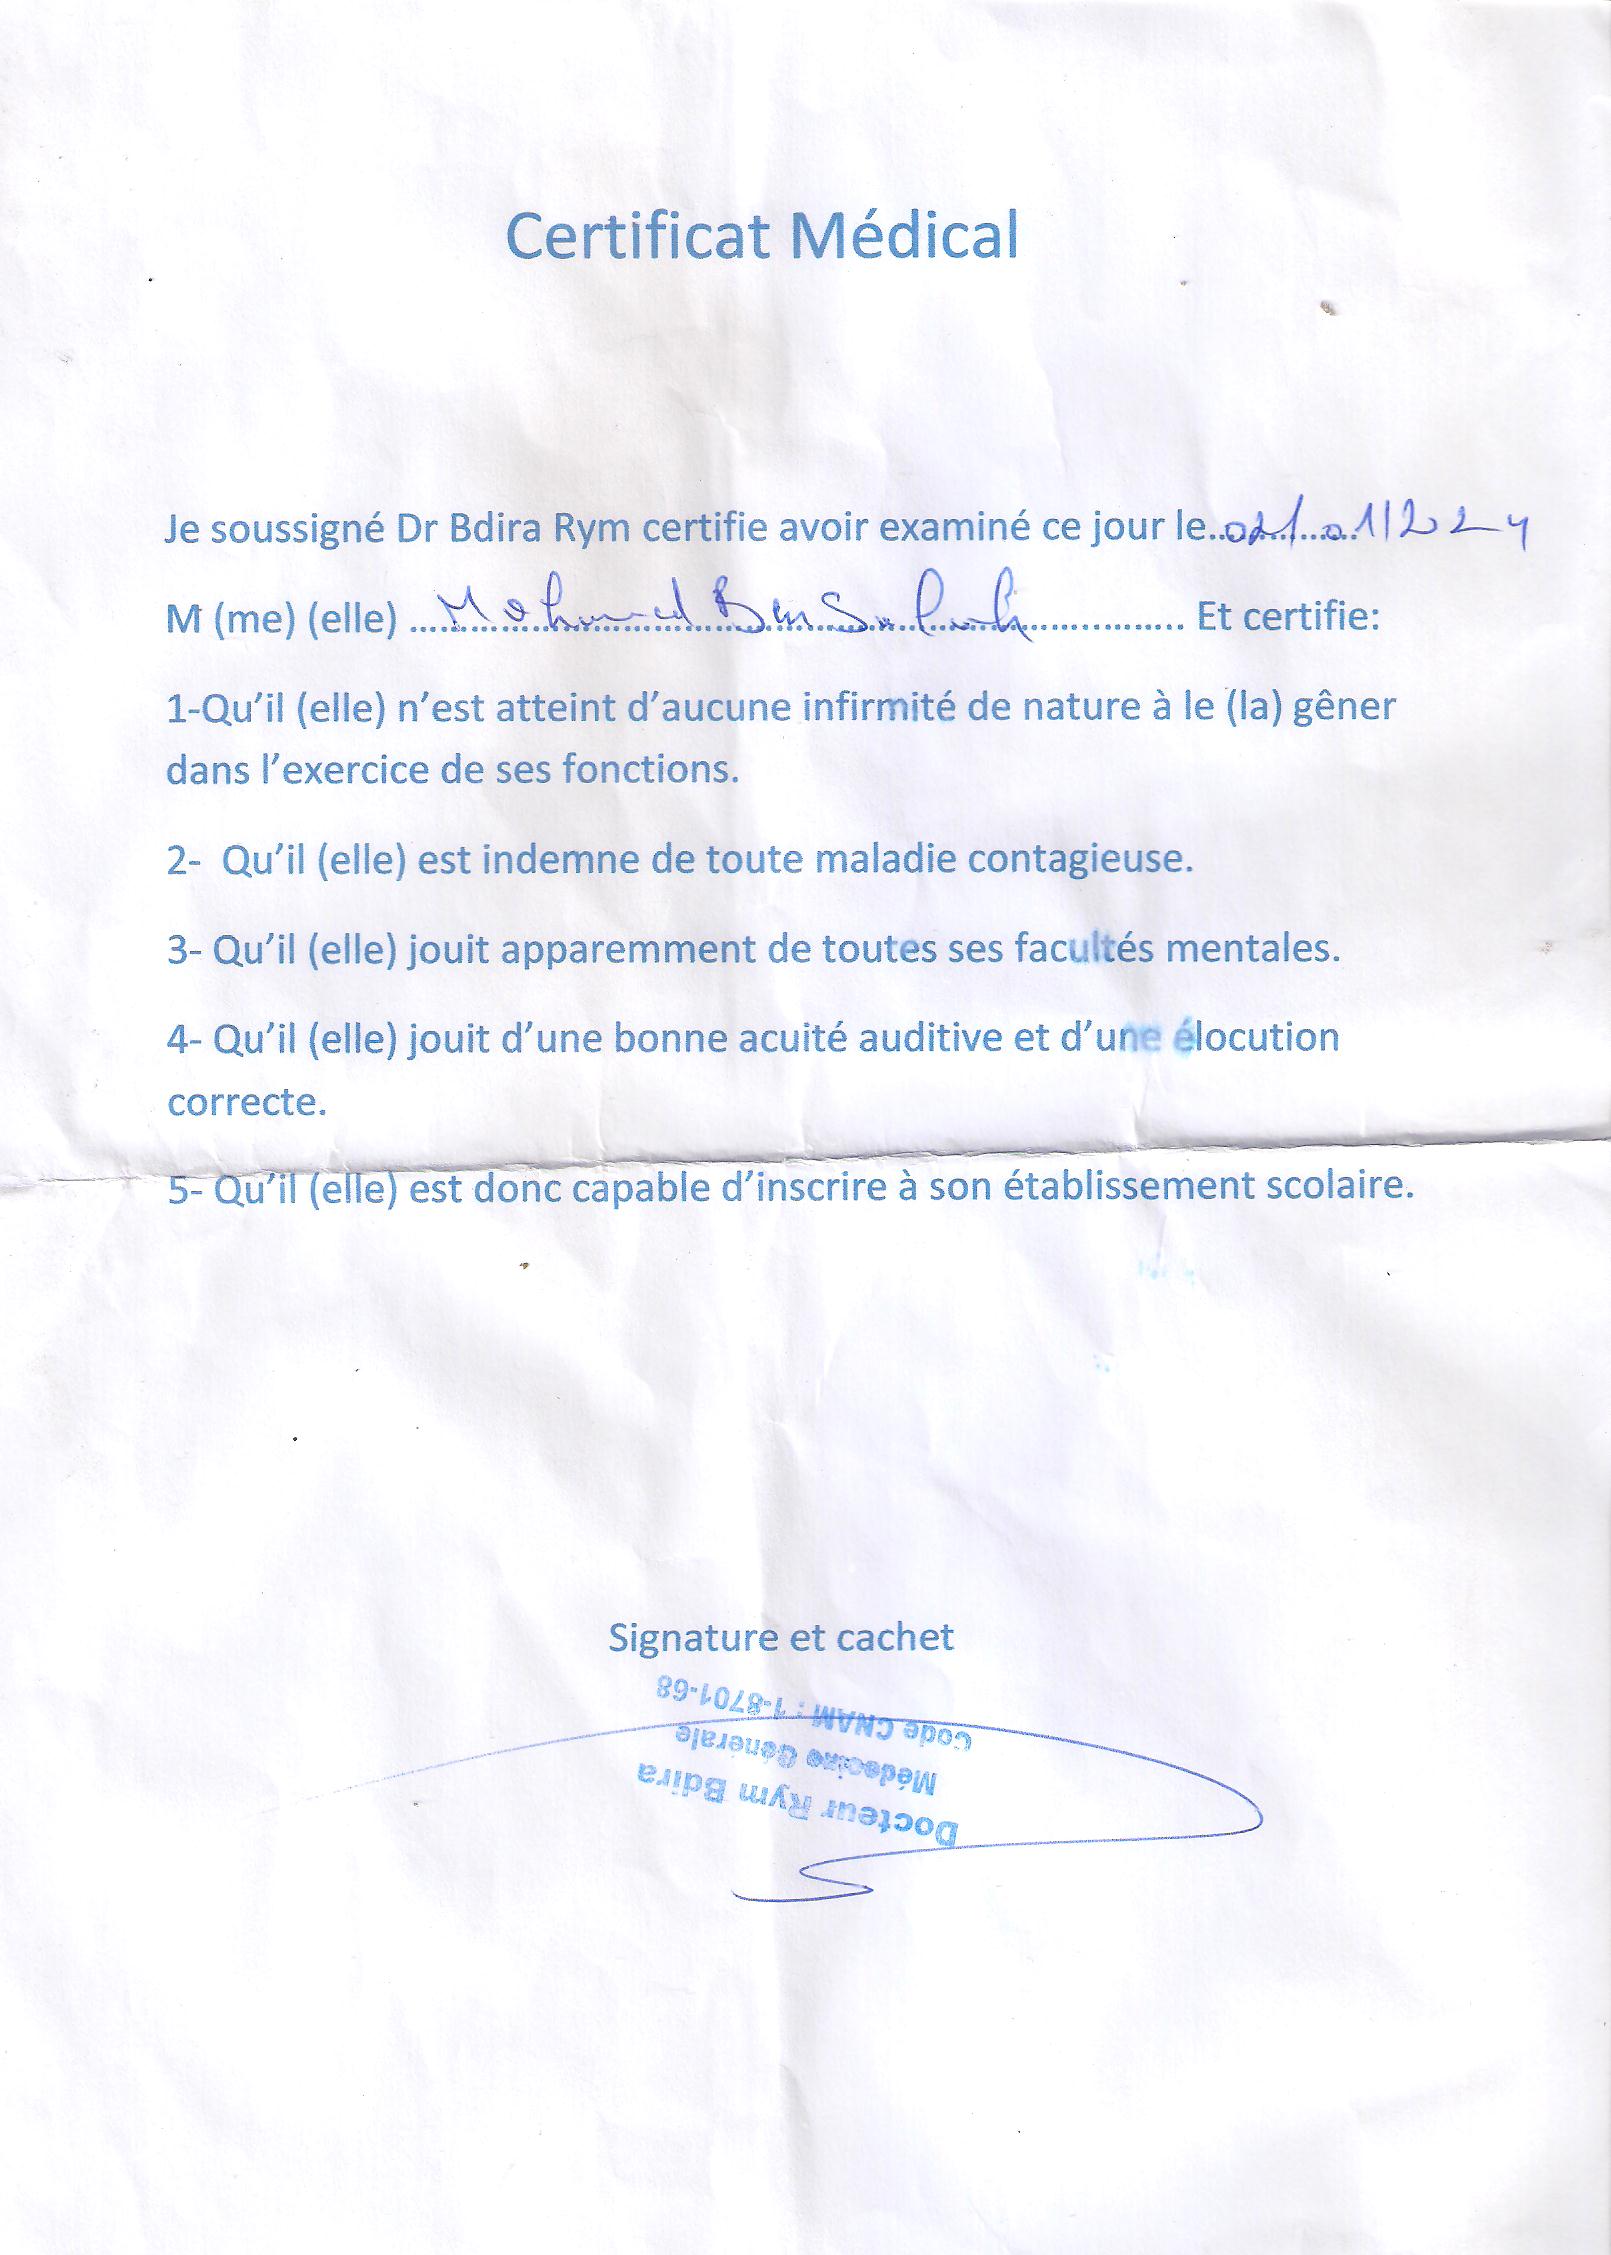 Certificat Médical
Je soussigné Dr Bdira Rym certifie avoir examiné ce jour le..02/.01/2024
M (me) (elle) ....Mohamed Ben Salah.................. Et certifie:
1-Qu’il (elle) n’est atteint d’aucune infirmité de nature à le (la) gêner
dans l’exercice de ses fonctions.
2- Qu’il (elle) est indemne de toute maladie contagieuse.
3- Qu’il (elle) jouit apparemment de toutes ses facultés mentales.
4- Qu’il (elle) jouit d’une bonne acuité auditive et d’une élocution
correcte.
5- Qu’il (elle) est donc capable d’inscrire à son établissement scolaire.
Signature et cachet
Docteur Rym Bdira
Médecine Générale
Code CNAM : 1-8701-68